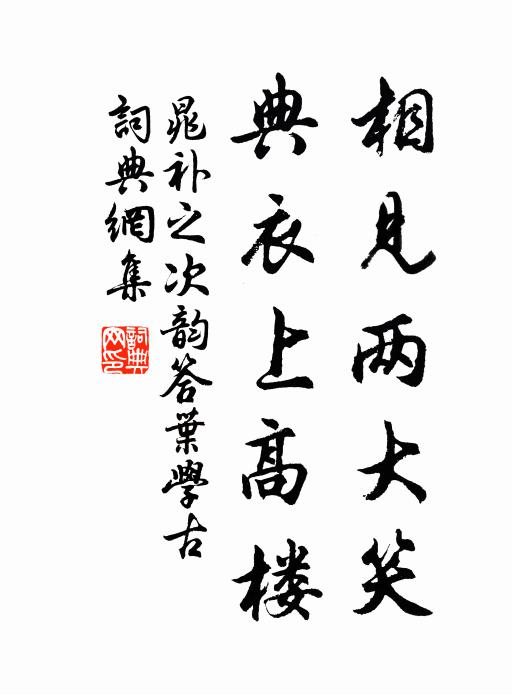 相见两大笑
典衣上高楼
晁补之次韵答葉學古
詞典網集
詞典网印